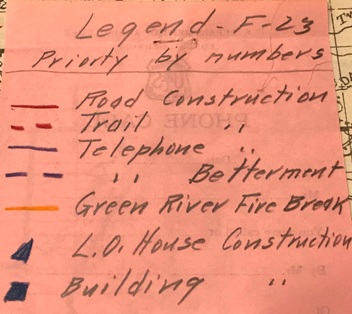 Legend - F-23
Priorty by numbers
Road Construction
Trail "
Telephone "
" Betterment
Green River Fire Break
L.O. House Construction
Building "
PHONE CA